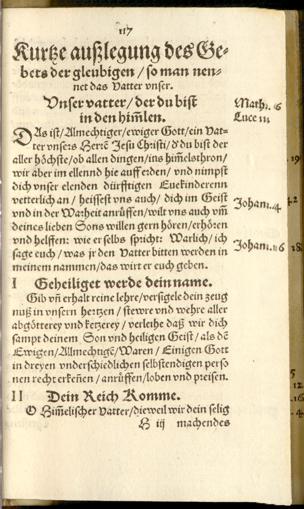 117
Kurtze außlegung des Ge-
bets der gleubigen / so man nen-
net das Vatter vnser.
Vnser vatter / der du bist
in den him̃len.
Math. 6
Luce 11
DAs ist / Almechtiger / ewiger Gott / ein Vat-
ter vnsers Herrẽ Jesu Christi / d' du bist der
aller höchste / ob allen dingen / ins himelsthron /
wir aber im ellennd hie auff erden / vnd nimpst
dich vnser elenden dürfftigen Euekinderenn
vetterlich an / heissest vns auch / dich im Geist
vnd in der Warheit anrüffen / wilt vns auch vm̃
deines lieben Sons willen gern hören / erhören
vnd helffen: wie er selbs spricht: Warlich / ich
sage euch / was jr den Vatter bitten werden in
meinem nammen / das wirt er euch geben.
Johan. 4
Johan. 16
I Geheiliget werde dein name.
Gib vñ erhalt reine lehre / versigele dein zeug
nuß in vnsern hertzen / stewre vnd wehre aller
abgötterey vnd ketzerey / verleihe daß wir dich
sampt deinem Son vnd heiligen Geist / als dẽ
Ewigen / Allmechtigẽ / Waren / Einigen Gott
in dreyen vnderschiedlichen selbstendigen perso
nen recht erkeñen / anrüffen / loben vnd preisen.
II Dein Reich Komme.
O Himelischer Vatter / dieweil wir dein selig
H iij machendes